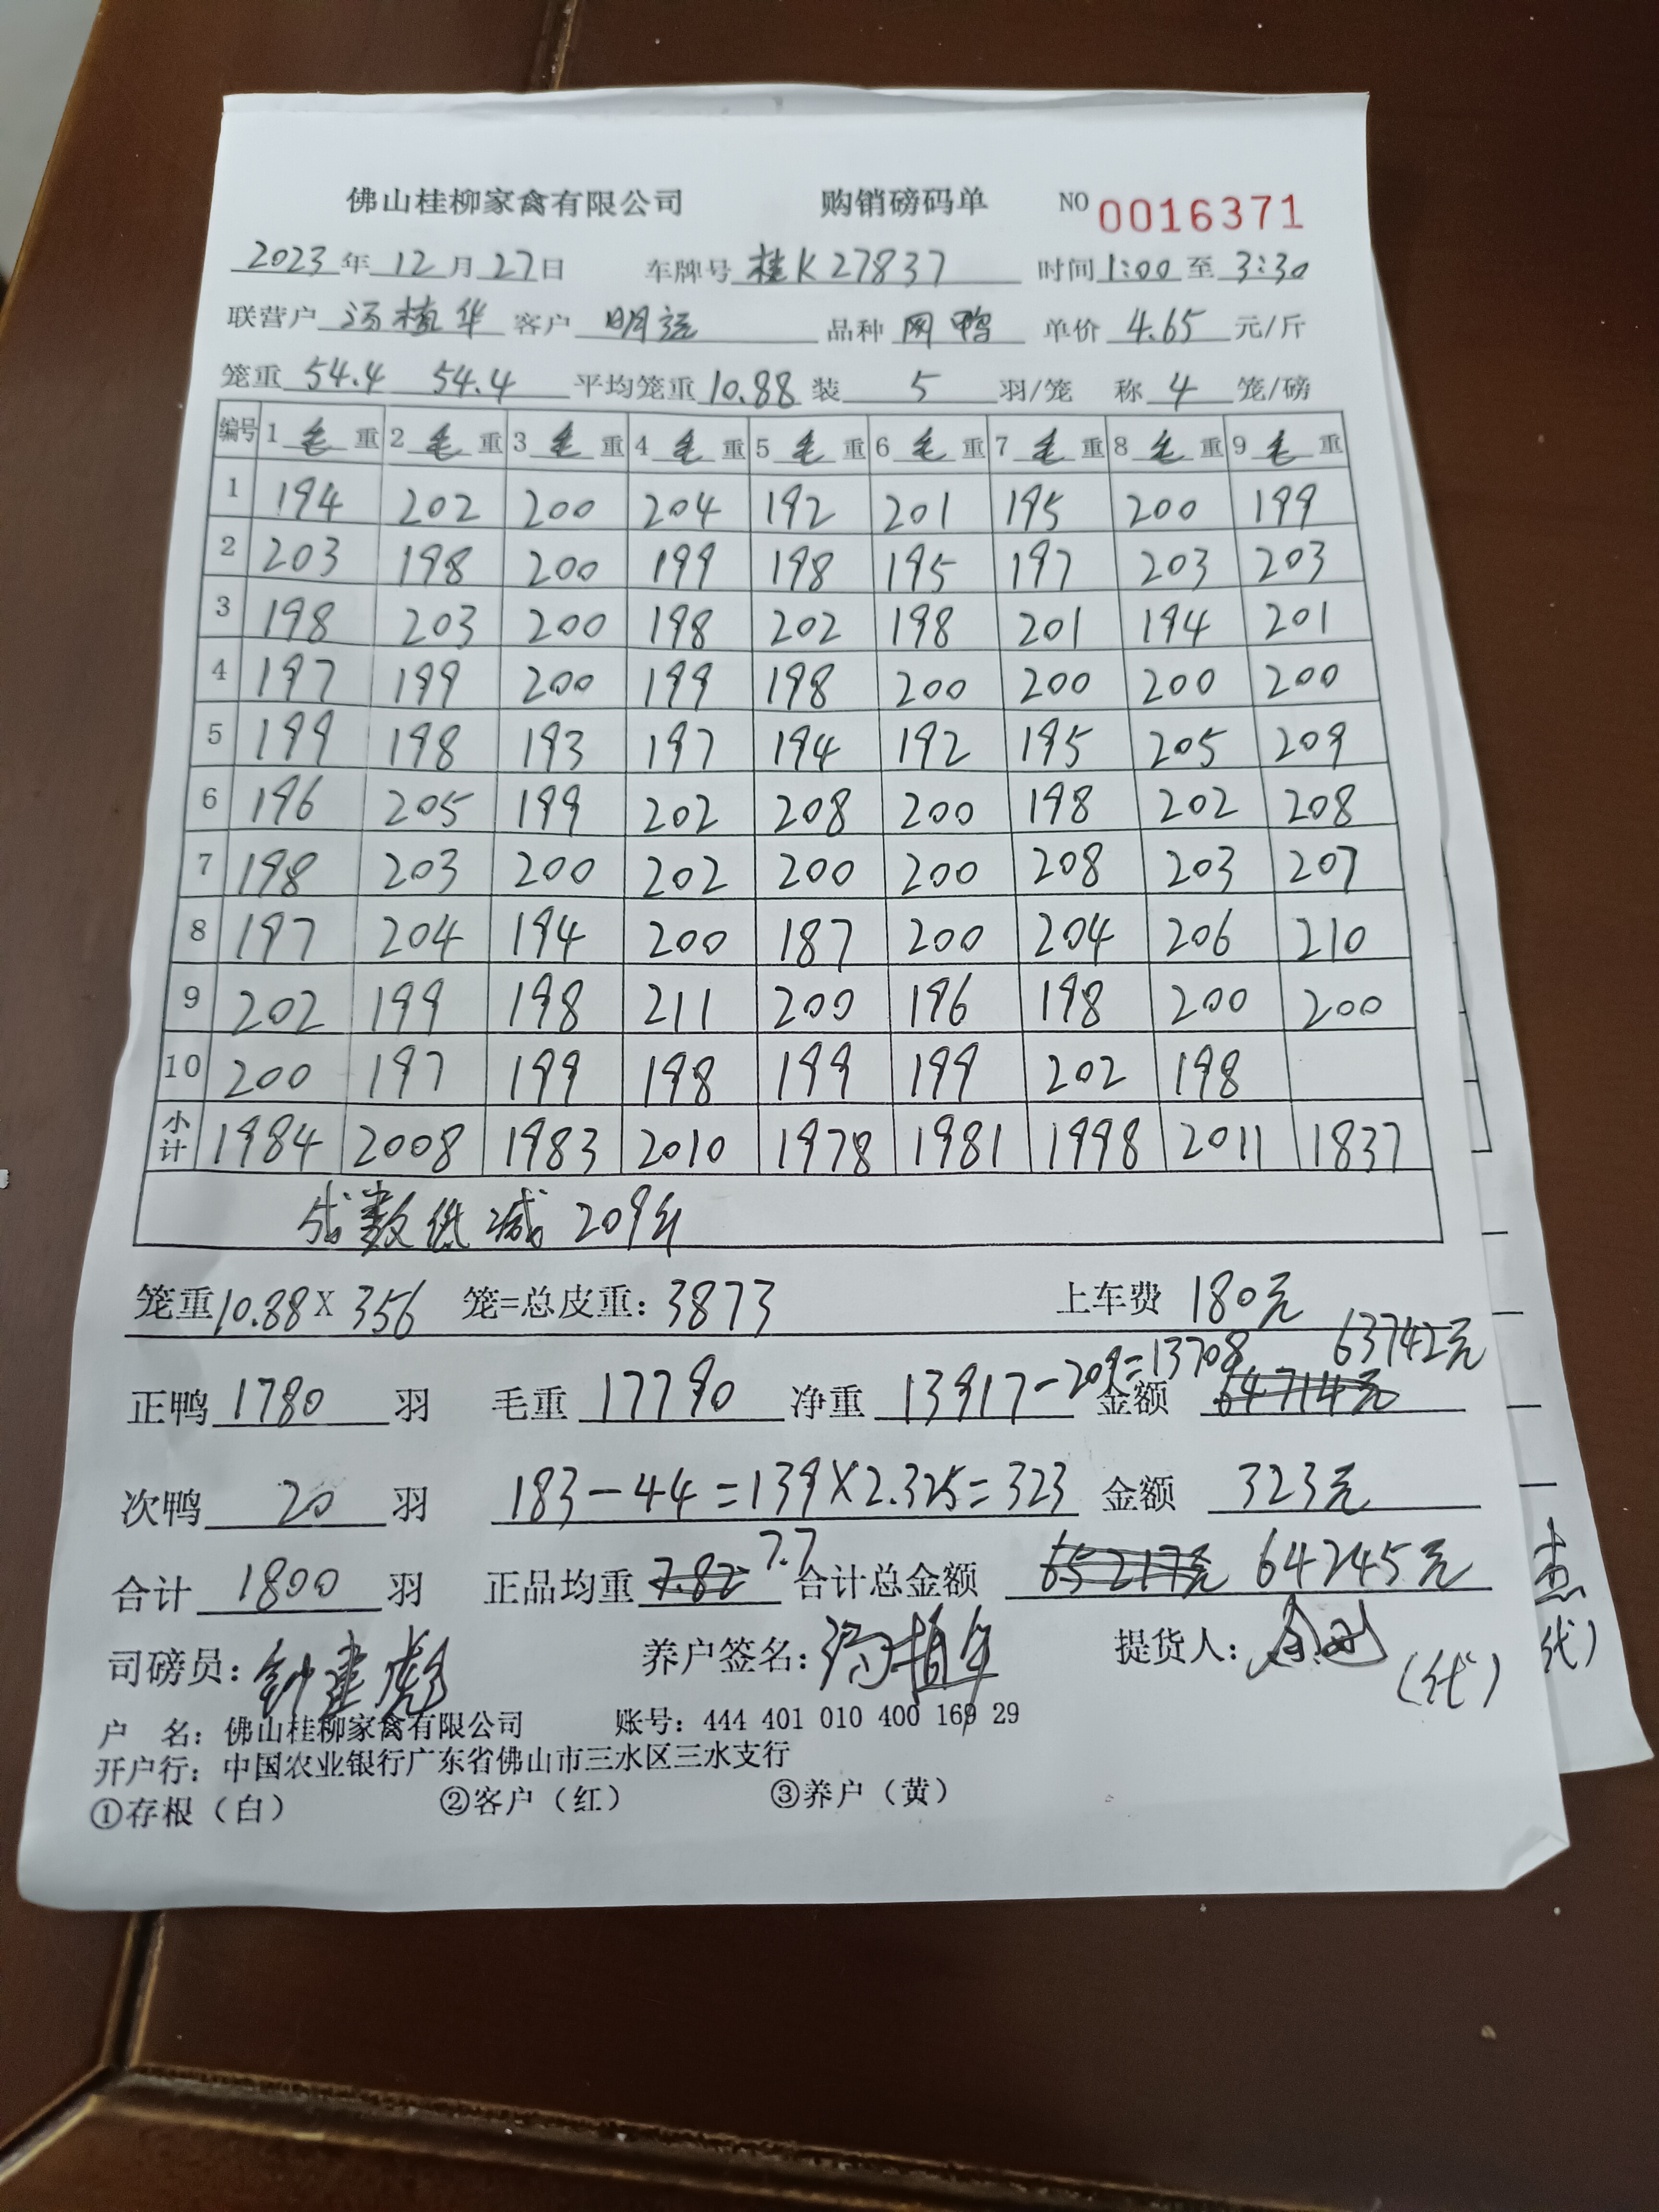 佛山桂柳家禽有限公司 购销磅码单 NO 0016371
2023年12月27日 车牌号 桂K27837 时间1:00至3:30
联营户 汤植华 客户 明远 品种 网鸭 单价 4.65 元/斤
笼重 54.4 54.4 平均笼重 10.88 装 5 羽/笼 称 4 笼/磅
编号 1 毛 重 2 毛 重 3 毛 重 4 毛 重 5 毛 重 6 毛 重 7 毛 重 8 毛 重 9 毛 重
1 194 202 200 204 192 201 195 200 199
2 203 198 200 199 198 195 197 203 203
3 198 203 200 198 202 198 201 194 201
4 197 199 200 199 198 200 200 200 200
5 199 198 193 197 194 192 195 205 209
6 196 205 199 202 208 200 198 202 208
7 198 203 200 202 200 200 208 203 207
8 197 204 194 200 187 200 204 206 210
9 202 199 198 211 200 196 198 200 200
10 200 197 199 198 199 199 202 198
小计 1984 2008 1983 2010 1978 1981 1998 2011 1837
成数低减209斤
笼重10.88X 356 笼=总皮重: 3873 上车费 180元
正鸭 1780 羽 毛重 17790 净重 13917-209=13708 金额 64714元 63742元
次鸭 20 羽 183-44=139X2.325=323 金额 323元
合计 1800 羽 正品均重 7.82 7.7 合计总金额 65217元 64245元
司磅员: 钟建彪 养户签名: 汤植华 提货人: (代)
户 名: 佛山桂柳家禽有限公司 账号: 444 401 010 400 169 29
开户行: 中国农业银行广东省佛山市三水区三水支行
①存根（白） ②客户（红） ③养户（黄）
代)